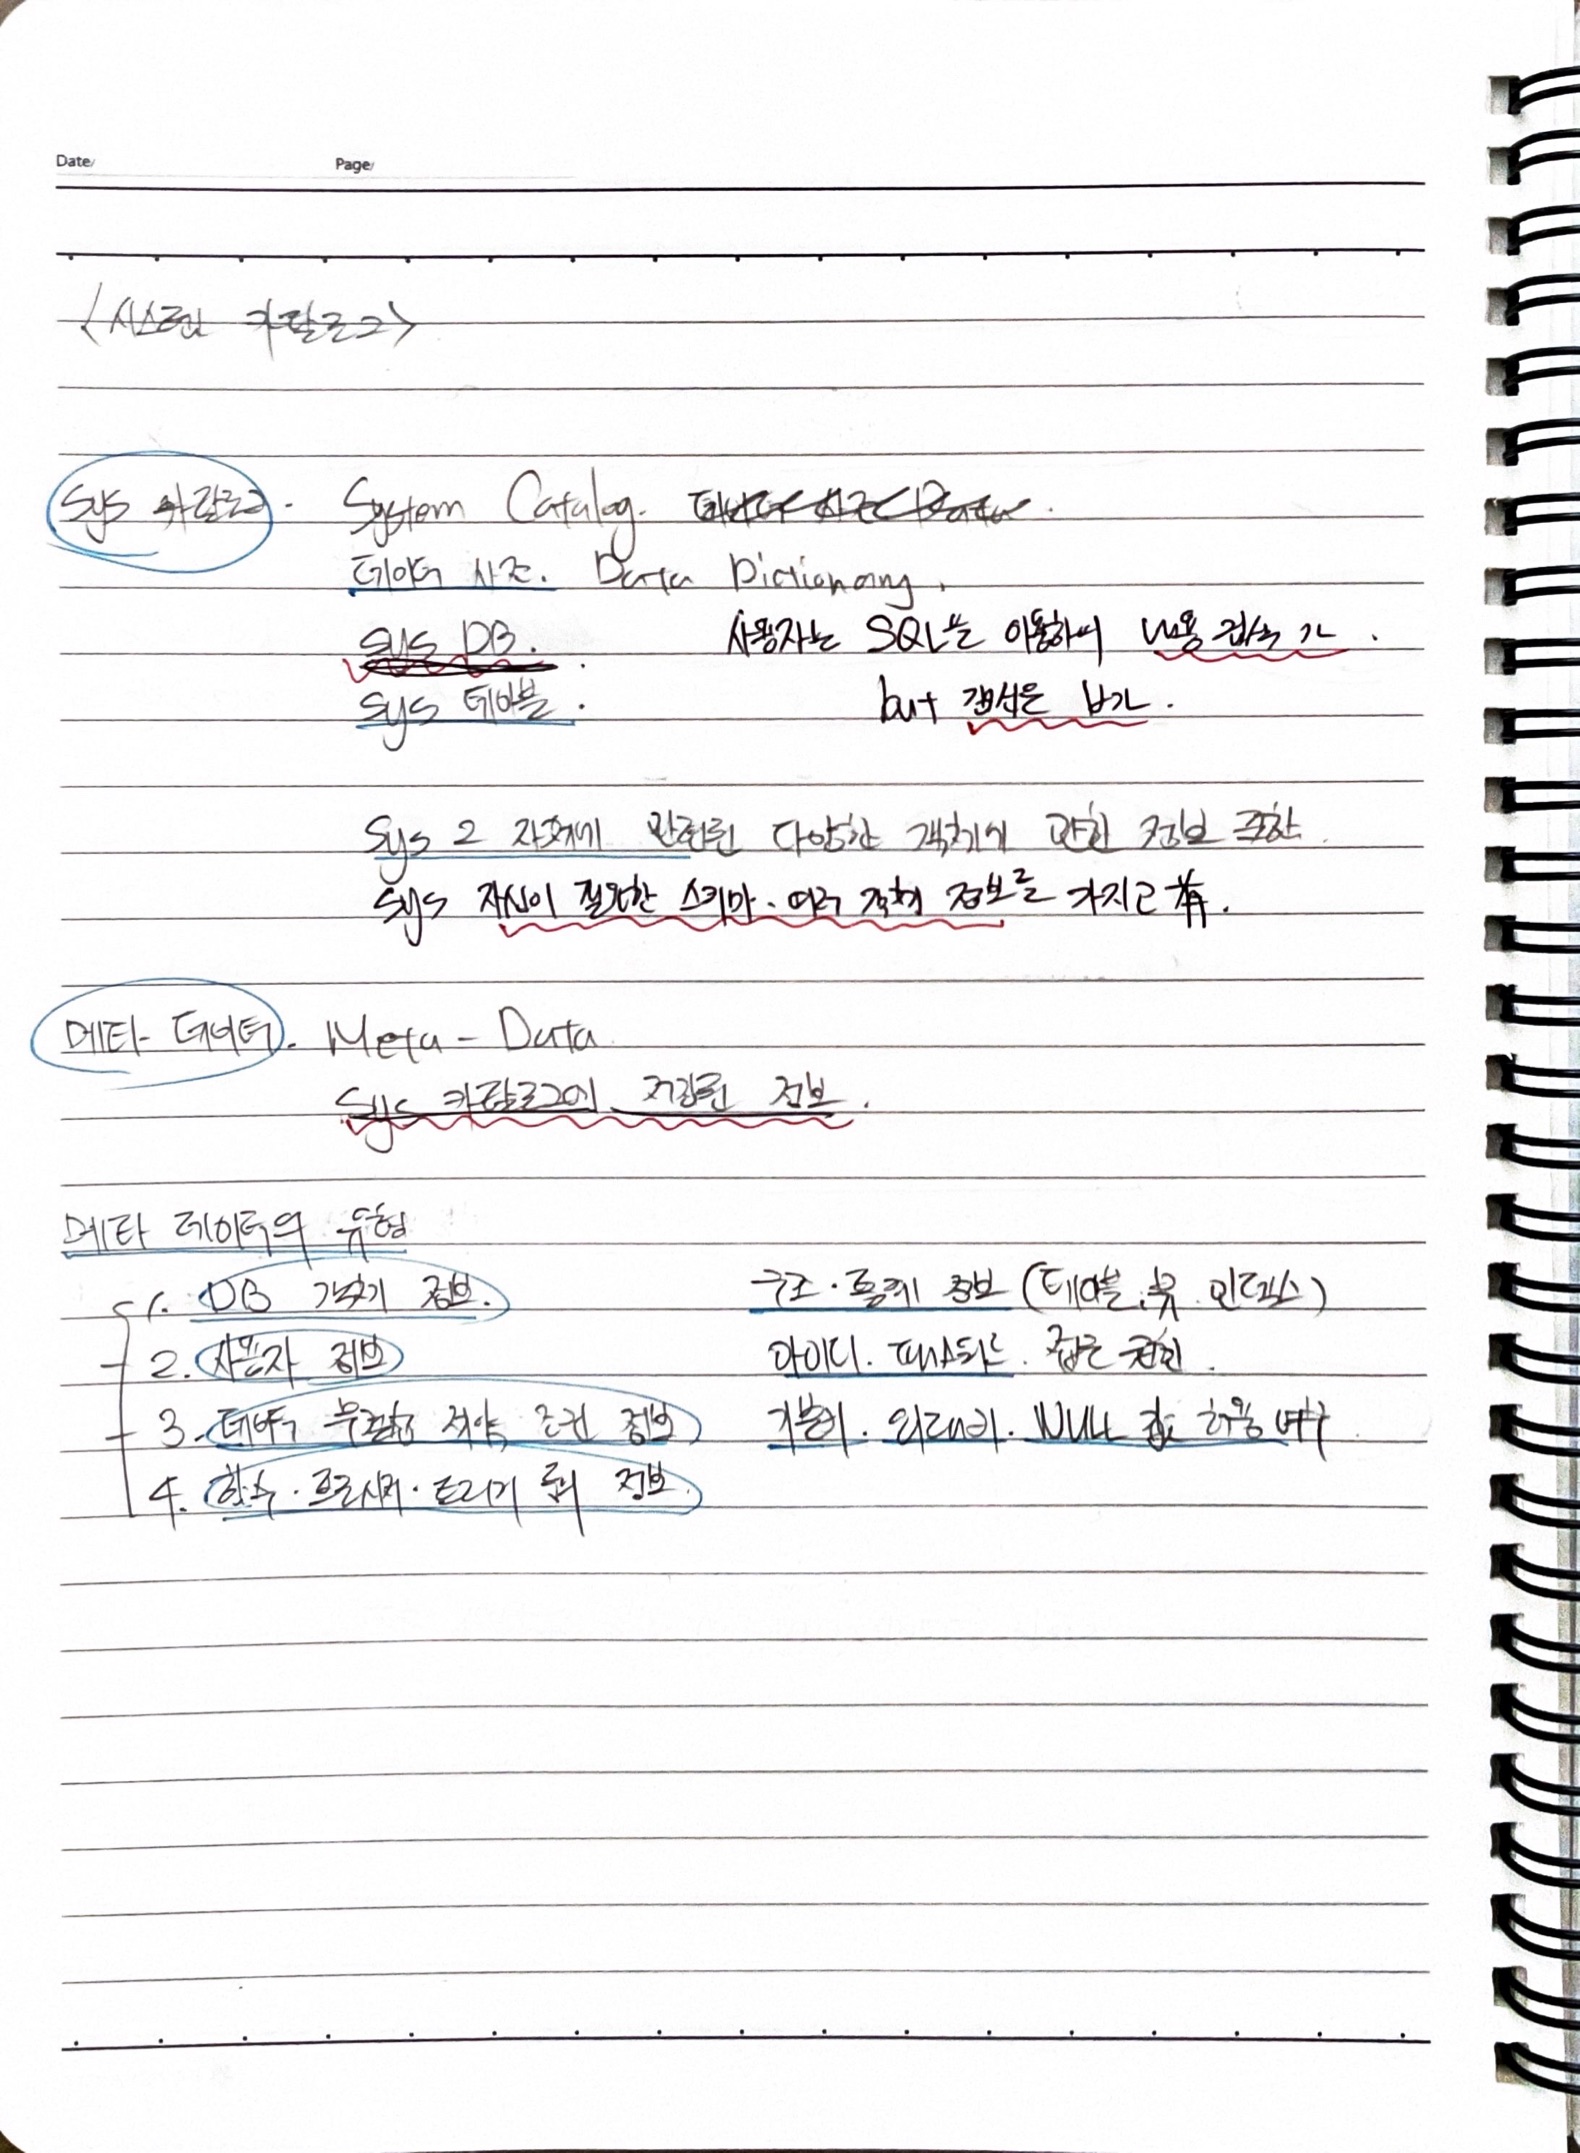 Date/ Page/
<시스템 카탈로그>
Sys 카탈로그. System Catalog.
데이터 사전. Data Dictionary.
Sys DB. 사용자는 SQL을 이용하여 내용 검색 가.
Sys 테이블. but 갱신은 불가.
Sys 그 자체에 관련된 다양한 객체에 관한 정보 포함.
Sys 자신이 필요한 스키마. 여러 객체 정보를 가지고 有.
메타-데이터. Meta-Data
Sys 카탈로그에 저장된 정보.
메타 데이터의 유형
1. DB 객체 정보. 구조·통계 정보 (테이블, 뷰, 인덱스)
2. 사용자 정보 아이디. 패스워드. 접근 권한.
3. 데이터 무결성 제약 조건 정보 기본키. 외래키. NULL 값 허용 여부
4. 함수·프로시저·트리거 등의 정보.